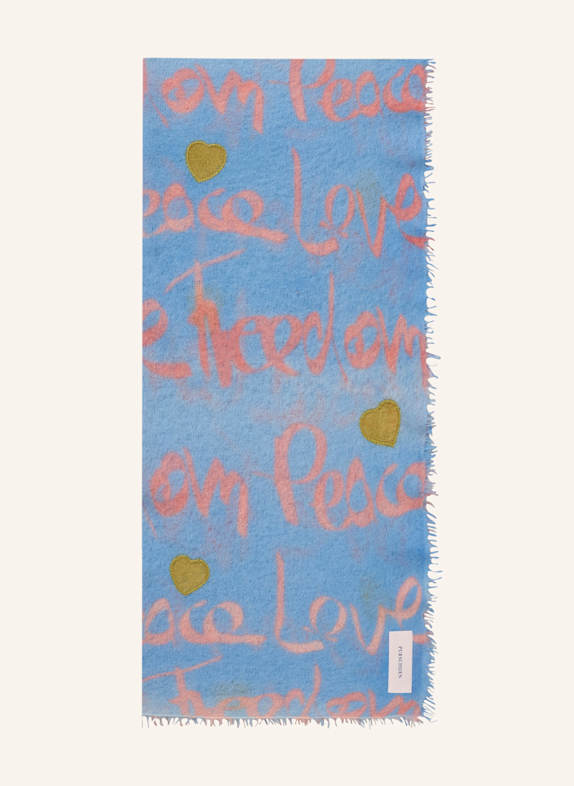 om Peace
eace Love
e Freedom
om Peace
ace Love
PURSCHOEN
Freedom